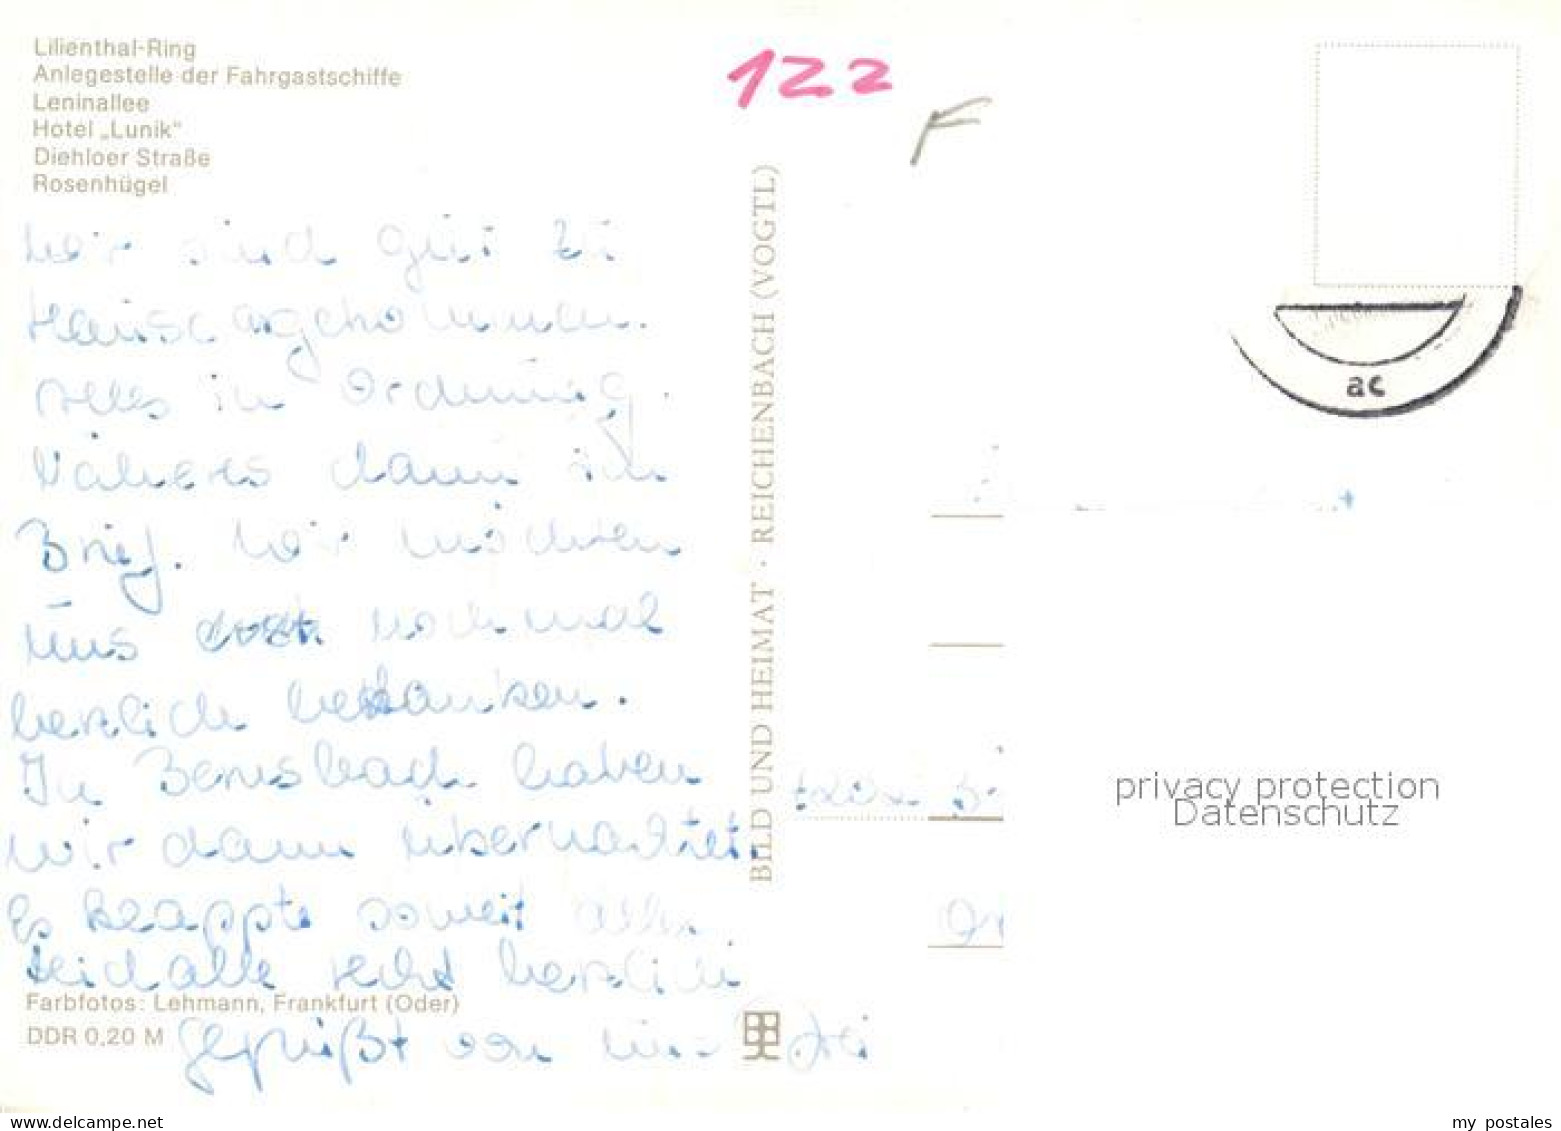 Lilienthal-Ring
Anlegestelle der Fahrgastschiffe
Leninallee
Hotel „Lunik"
Diehloer Straße
Rosenhügel
122
F
wir sind gut zu
Hause angekommen.
Alles in Ordnung.
Näheres dann im
Brief. Wir möchten
uns erst nochmal
herzlich bedanken.
In Bernsbach haben
wir dann übernachtet.
Es klappte soweit alles
Seid alle recht herzlich
gegrüßt von uns drei
Farbfotos: Lehmann, Frankfurt (Oder)
DDR 0,20 M
BILD UND HEIMAT · REICHENBACH (VOGTL)
ac
privacy protection
Datenschutz
www.delcampe.net
my_postales